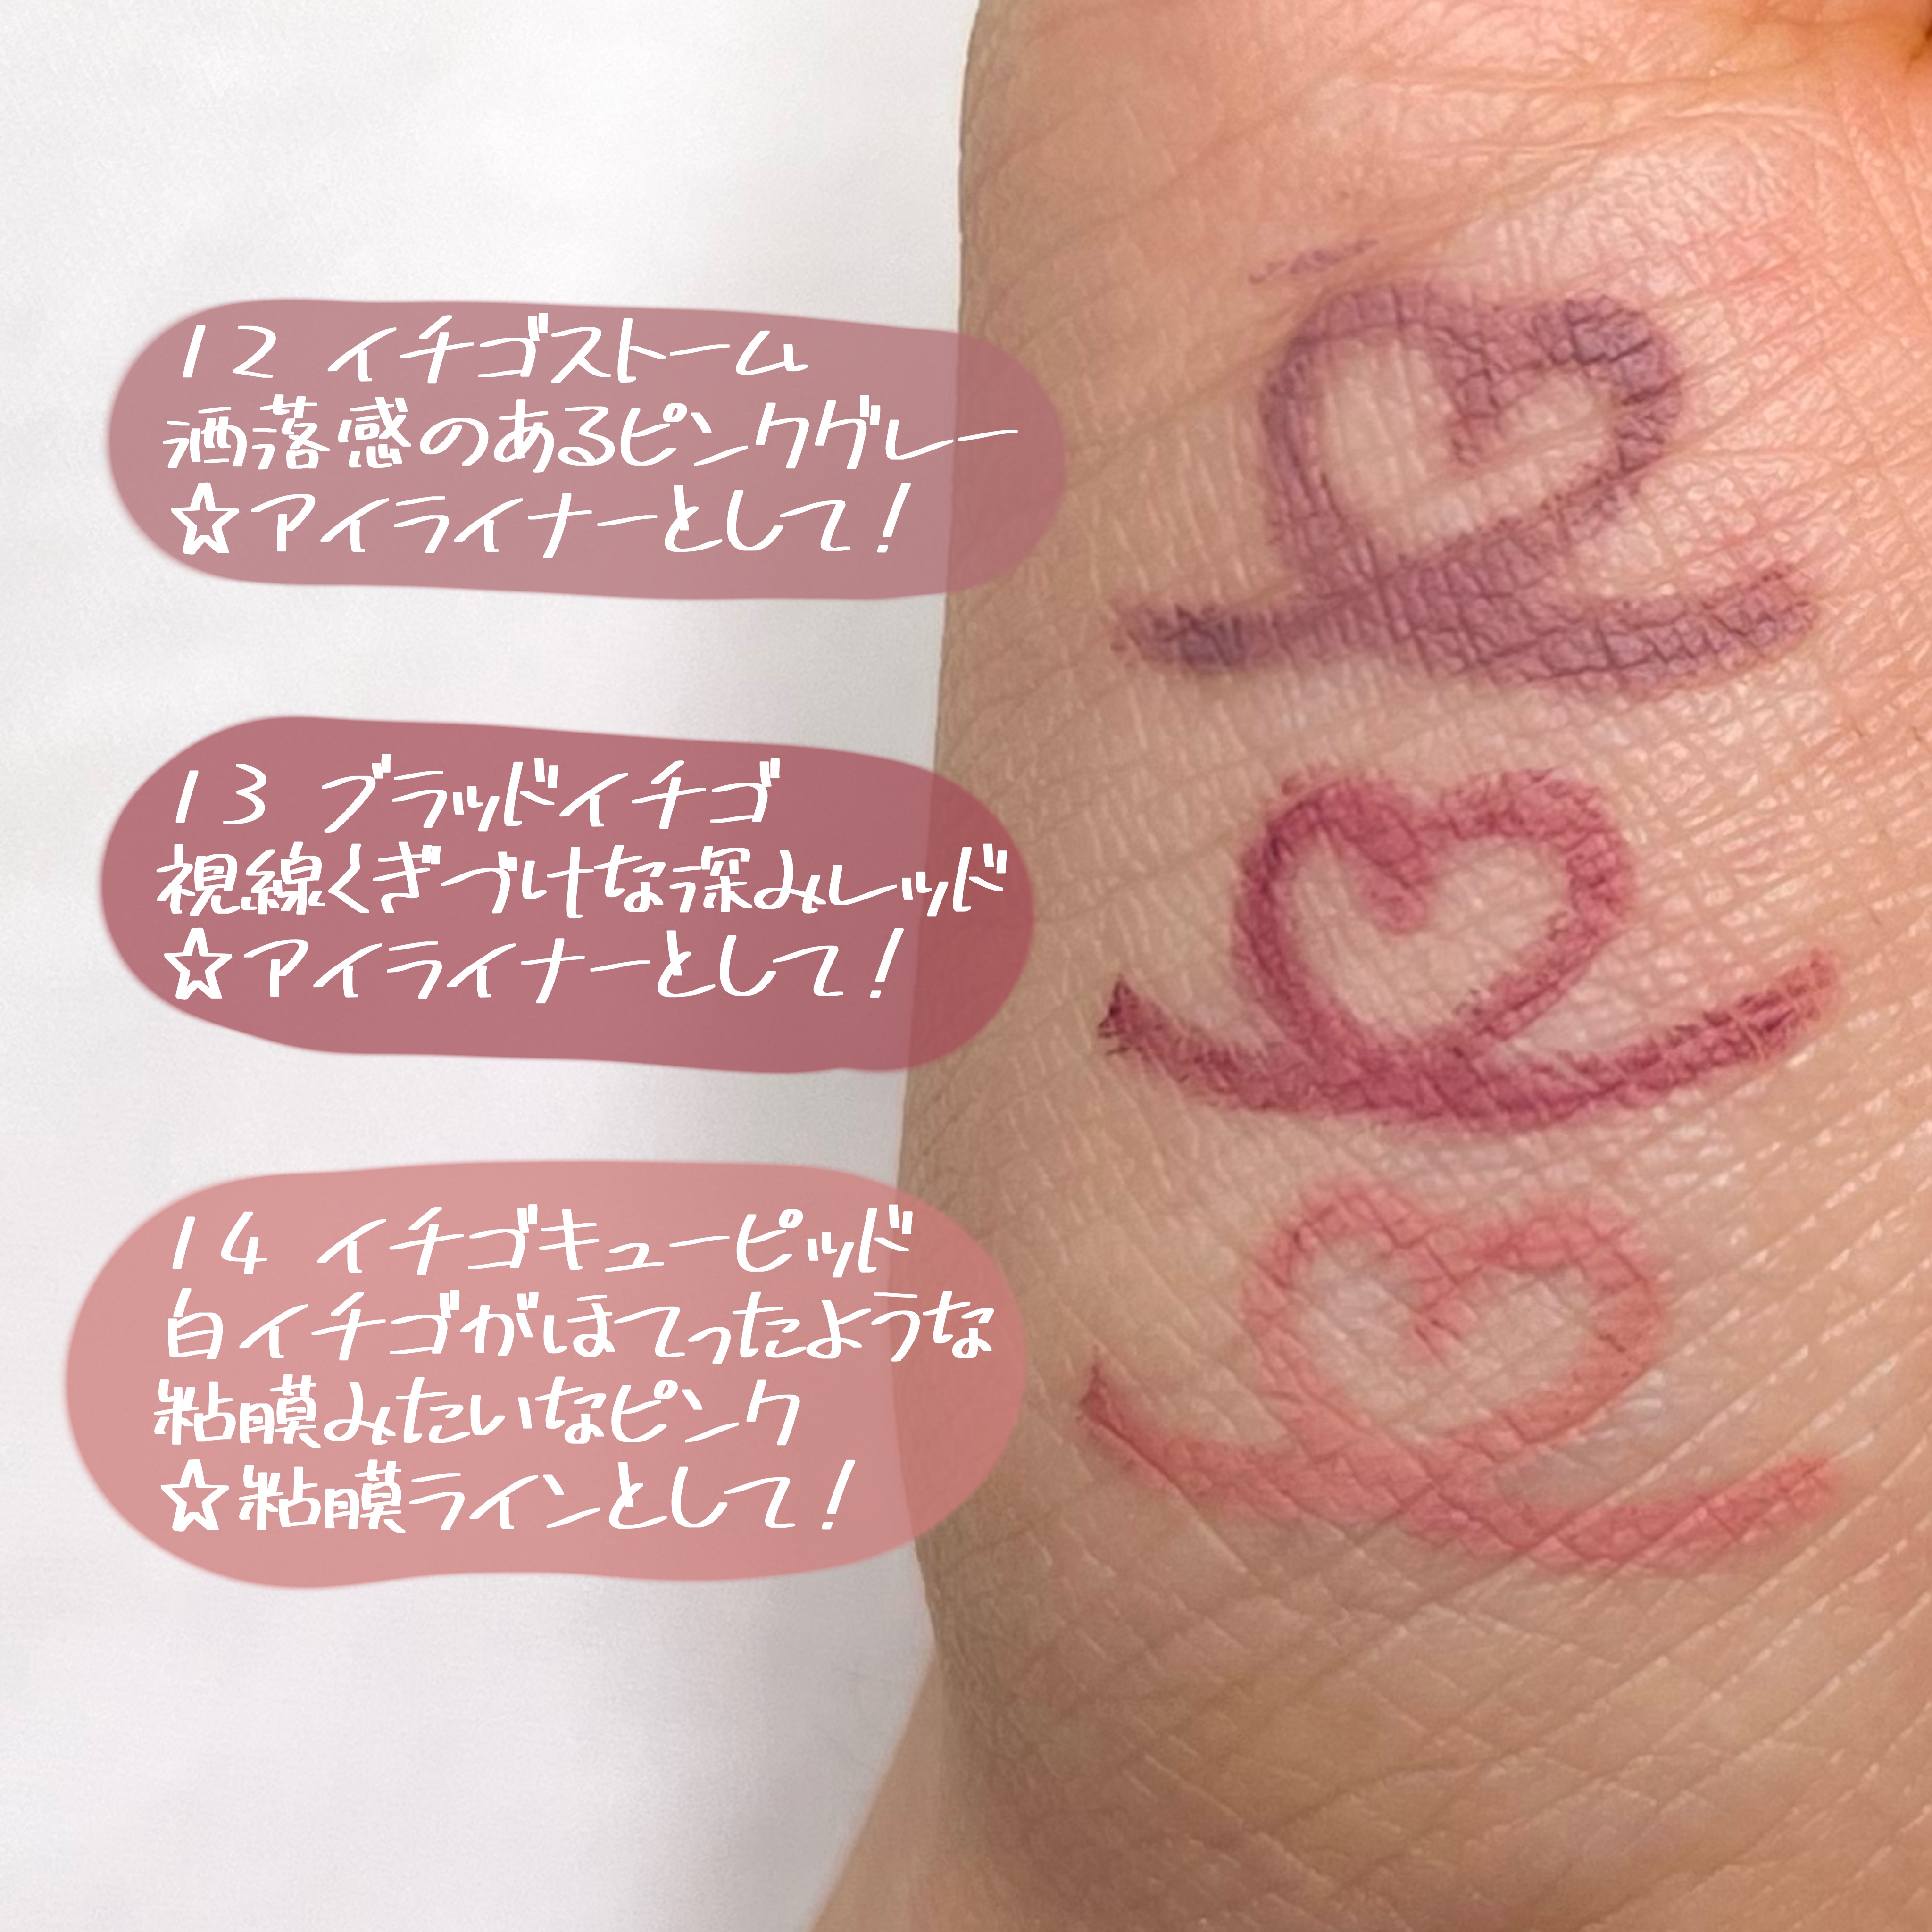 12 イチゴストーム
洒落感のあるピンクグレー
☆アイライナーとして!
13 ブラッドイチゴ
視線くぎづけな深みレッド
☆アイライナーとして!
14 イチゴキューピッド
白イチゴがほてったような
粘膜みたいなピンク
☆粘膜ラインとして!